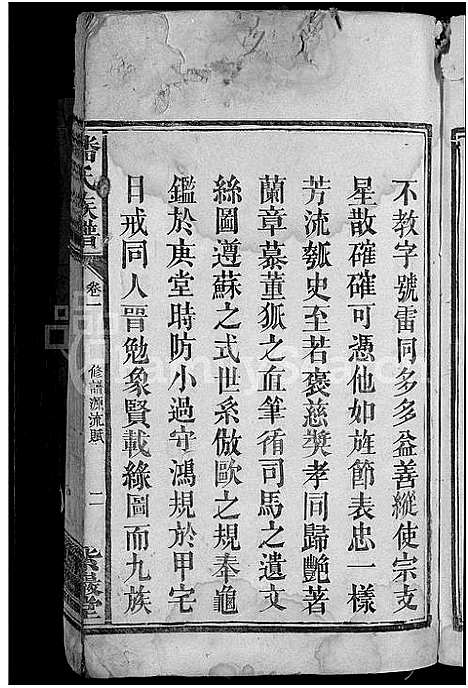 不教字號雷同多多益善縱使宗支
星散確確可憑他如旌節表忠一樣
芳流瓠史至若褒慈奬孝同歸艷著
蘭章慕董狐之血筆循司馬之遺文
絲圖遵蘇之式世系倣歐之規奉龜
鑑於庚堂時防小過守鴻規於甲宅
日戒同人晉勉象賢載緣圖而九族
潘氏族譜
卷一
修譜源流賦
二
紫巖堂